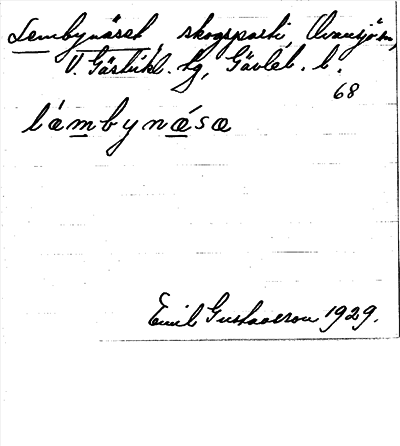 Lembynäset, skogsparti, Ovansjö sn,
V. Gästrikl. hg, Gävleb. l.
68
lámbynǽsæ
Emil Gustavsson 1929.